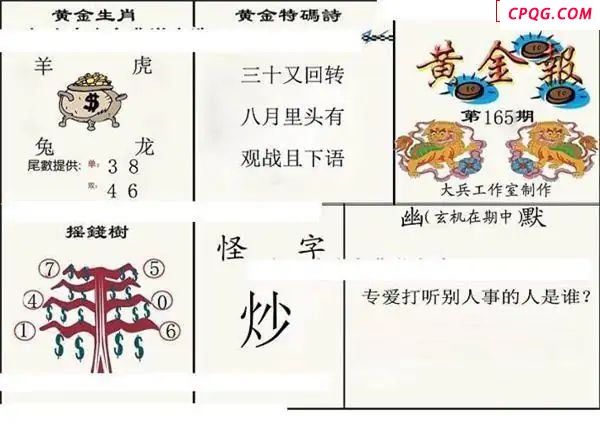 CPQG.COM
黄金生肖
羊 虎
$
兔 龙
尾數提供: 单: 3 8
双: 4 6
黄金特碼詩
三十又回转
八月里头有
观战且下语
黄金報
第165期
大兵工作室制作
摇錢樹
⑦ ⑤
④ ⓪
① ⑥
$ $ $ $ $ $ $ $
怪 字
炒
幽(玄机在期中)默
专爱打听别人事的人是谁?